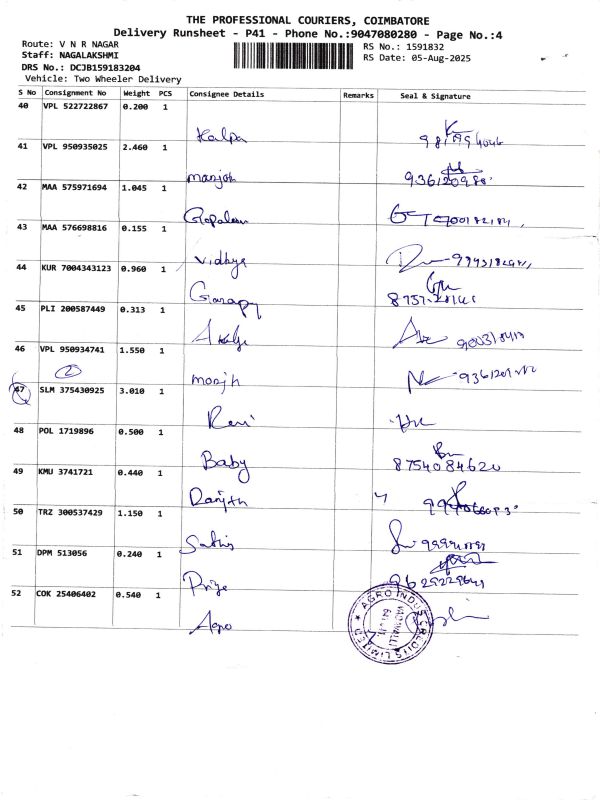 THE PROFESSIONAL COURIERS, COIMBATORE
Delivery Runsheet - P41 - Phone No.:9047080280 - Page No.:4
Route: V N R NAGAR
RS No.: 1591832
Staff: NAGALAKSHMI
RS Date: 05-Aug-2025
DRS No.: DCJB159183204
Vehicle: Two Wheeler Delivery
S No Consignment No Weight PCS Consignee Details Remarks Seal & Signature
40 VPL 522722867 0.200 1
Kalpa
41 VPL 950935025 2.460 1
manjoth
42 MAA 575971694 1.045 1
Gopalan
43 MAA 576698816 0.155 1
Vidhya
44 KUR 7004343123 0.960 1
Ganapy
45 PLI 200587449 0.313 1
46 VPL 950934741 1.550 1
2
47 SLM 375430925 3.010 1
Ravi
48 POL 1719896 0.500 1
Baby 8754084620
49 KMU 3741721 0.440 1
Ranjith
50 TRZ 300537429 1.150 1
Sathis
51 DPM 513056 0.240 1
Priya
52 COK 25406402 0.540 1
Agro
AGRO INDUS CREDITS LIMITED